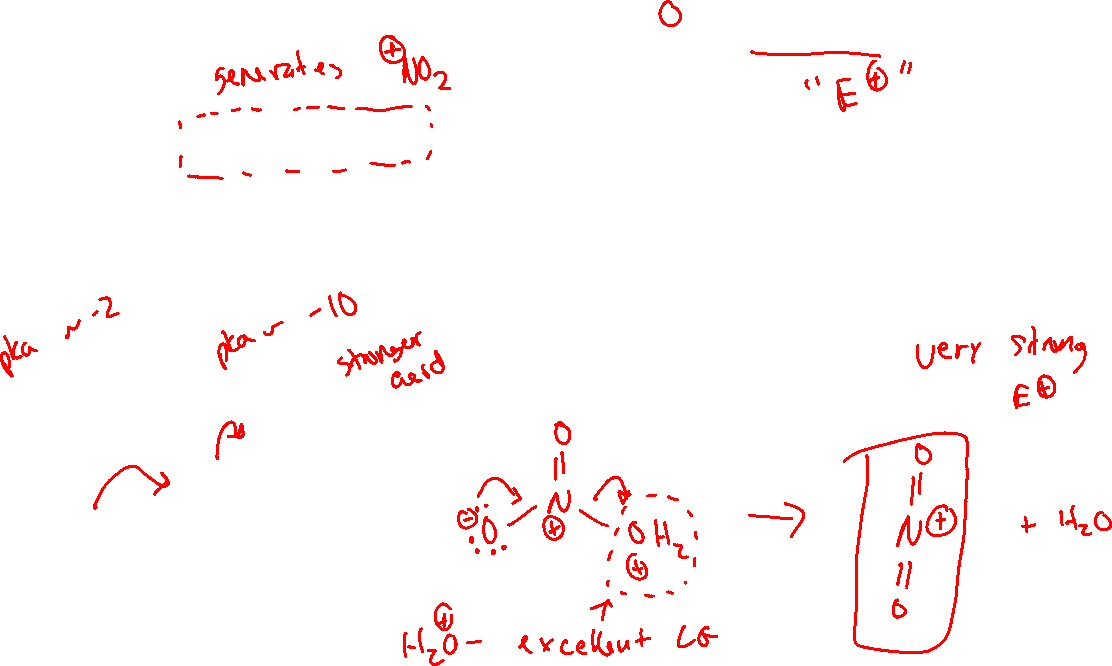 O
generates ⊕NO2
"E⊕"
pka ~ -2
pka ~ -10
stronger
acid
very strong
E⊕
O
O
N
N ⊕
+ H2O
⊖ O
⊕
OH2
⊕
O
H2O⊕ - excellent LG